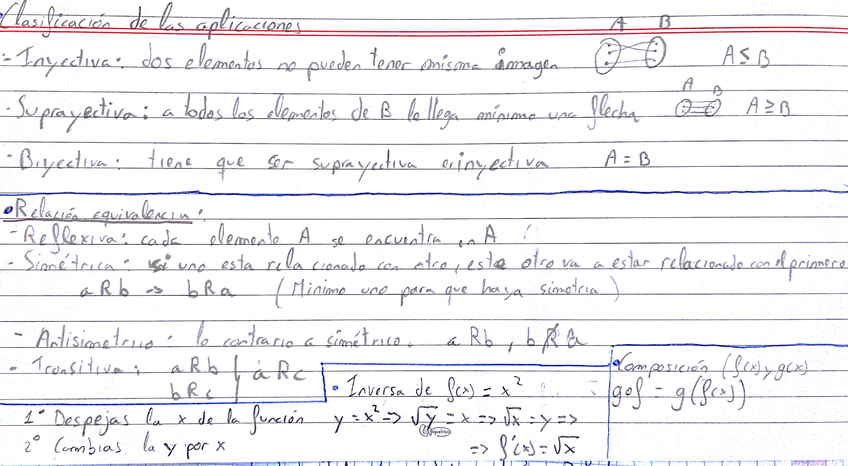 Clasificación de las aplicaciones
A B
- Inyectiva: dos elementos no pueden tener misma imagen A ≤ B
A B
· Suprayectiva: a todos los elementos de B le llega mínimo una flecha A ≥ B
· Biyectiva: tiene que ser suprayectiva e inyectiva A = B
• Relación equivalencia:
- Reflexiva: cada elemento A se encuentra en A
- Simétrica: si uno esta relacionado con otro, este otro va a estar relacionado con el primero
a R b → b R a (Minimo uno para que haya simetria)
- Antisimetrico: lo contrario a simétrico. a R b, b R̸ a
- Transitiva: a R b | a R c
b R c |
• Inversa de f(x) = x²
1º Despejas la x de la función y = x² => √y = x => √x = y =>
2º Cambias la y por x => f'(x) = √x
• Composición (f(x) y g(x)
g∘f = g(f(x))